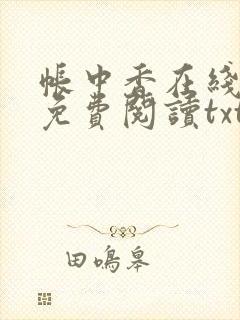 帳中香在綫
免費閱讀txt
田鳴皋